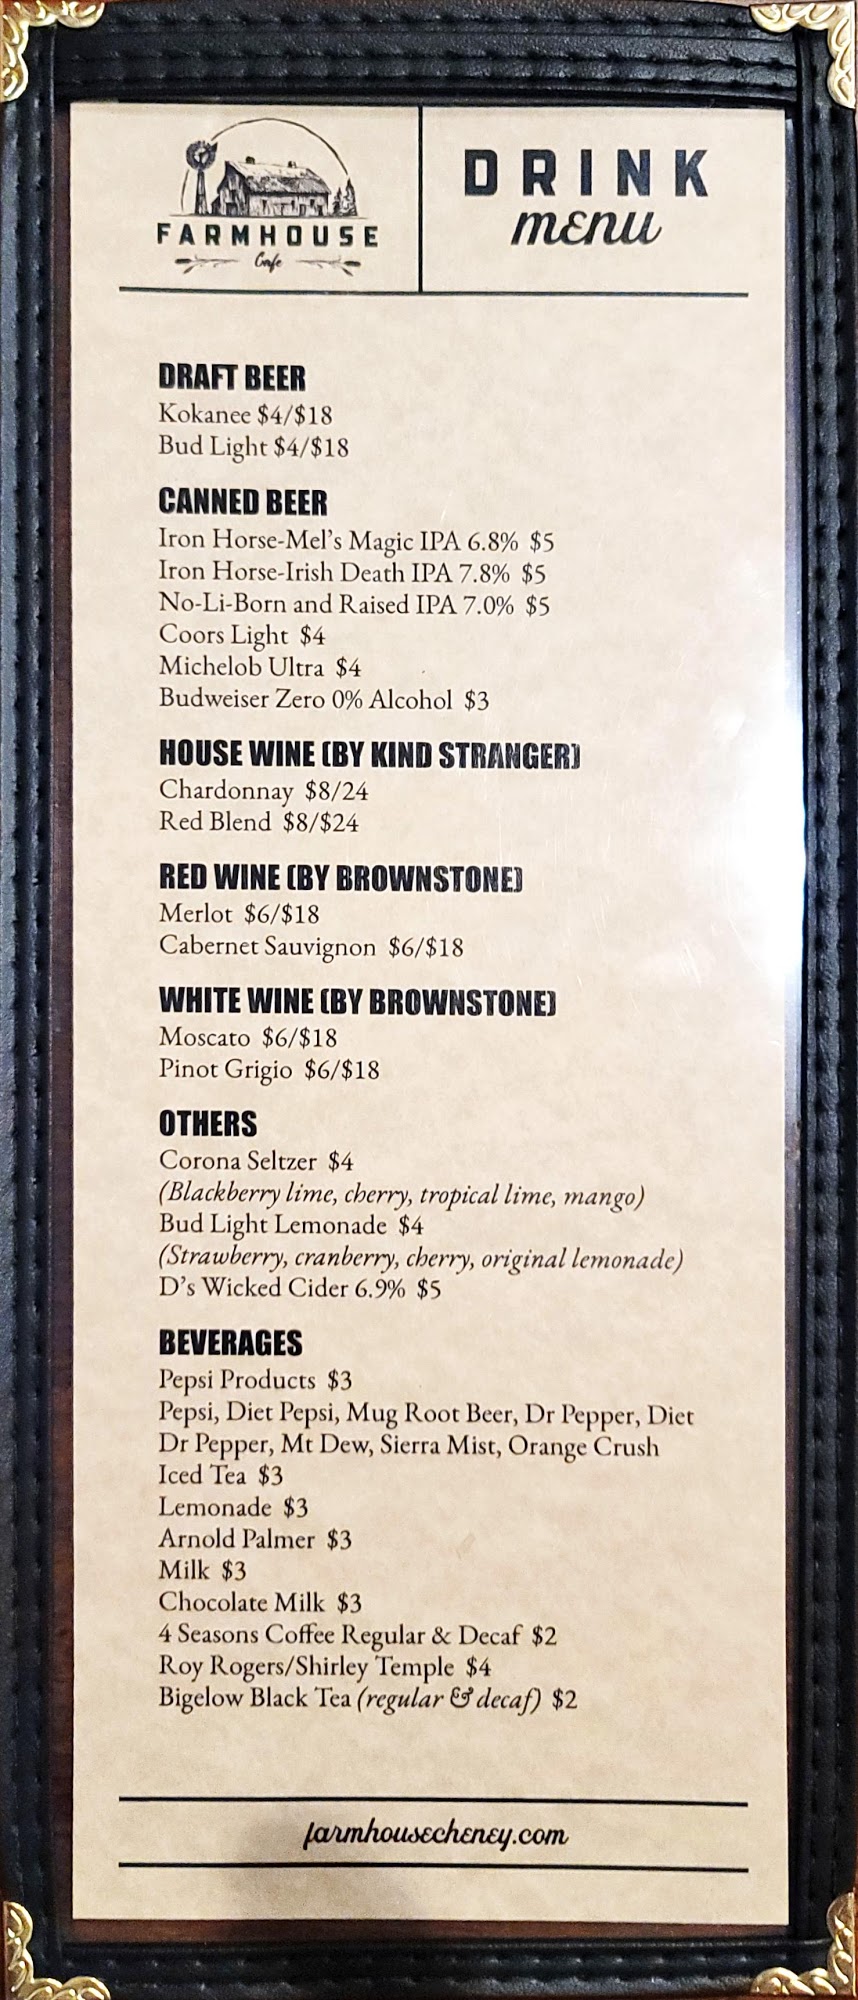 FARMHOUSE
Cafe
DRINK
menu
DRAFT BEER
Kokanee $4/$18
Bud Light $4/$18
CANNED BEER
Iron Horse-Mel's Magic IPA 6.8% $5
Iron Horse-Irish Death IPA 7.8% $5
No-Li-Born and Raised IPA 7.0% $5
Coors Light $4
Michelob Ultra $4
Budweiser Zero 0% Alcohol $3
HOUSE WINE (BY KIND STRANGER)
Chardonnay $8/24
Red Blend $8/$24
RED WINE (BY BROWNSTONE)
Merlot $6/$18
Cabernet Sauvignon $6/$18
WHITE WINE (BY BROWNSTONE)
Moscato $6/$18
Pinot Grigio $6/$18
OTHERS
Corona Seltzer $4
(Blackberry lime, cherry, tropical lime, mango)
Bud Light Lemonade $4
(Strawberry, cranberry, cherry, original lemonade)
D's Wicked Cider 6.9% $5
BEVERAGES
Pepsi Products $3
Pepsi, Diet Pepsi, Mug Root Beer, Dr Pepper, Diet
Dr Pepper, Mt Dew, Sierra Mist, Orange Crush
Iced Tea $3
Lemonade $3
Arnold Palmer $3
Milk $3
Chocolate Milk $3
4 Seasons Coffee Regular & Decaf $2
Roy Rogers/Shirley Temple $4
Bigelow Black Tea (regular & decaf) $2
farmhousecheney.com